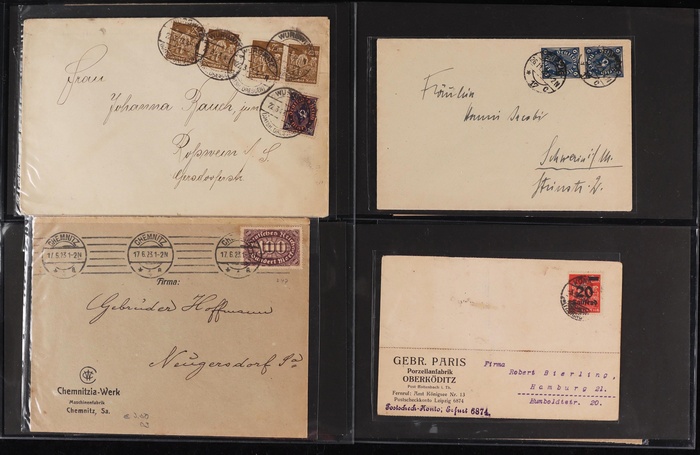 WURZEN
Frau
Johanna Rauch jun
Roßwein i. S.
Gersdorferstr
Fräulein
Hanni Jacobi
Schwerin i/M.
Steinstr. 2.
CHEMNITZ
17.6.23.1-2N
CHEMNITZ
17.6.23.1-2N
CHEMNITZ
17.6.23.1-2N
Deutsches Reich
100
Firma:
Gebrüder Hoffmann
Neugersdorf Sa
Chemnitzia-Werk
Maschinenfabrik
Chemnitz, Sa.
20
Tausend
GEBR. PARIS
Porzellanfabrik
OBERKÖDITZ
Post Rottenbach i. Th.
Fernruf: Amt Königsee Nr. 13
Postscheckkonto Leipzig 6874
Postscheck-Konto, Erfurt 6874.
Firma
Robert Bierling,
Hamburg 21.
Humboldtstr. 20.